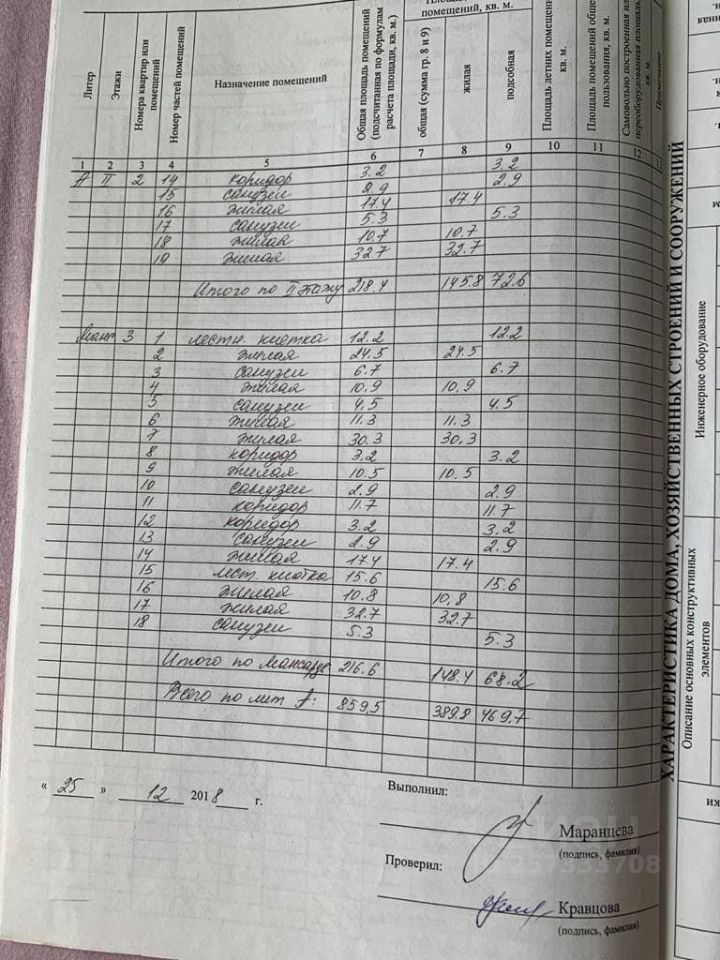 помещений, кв. м.
Литер
Этажи
Номера квартир или помещений
Номер частей помещений
Назначение помещений
Общая площадь помещений (подсчитанная по формулам расчета площади, кв. м.)
общая (сумма гр. 8 и 9)
жилая
подсобная
Площадь летних помещений кв. м.
Площадь помещений общего пользования, кв. м.
Самовольно построенная или переоборудованная площадь, кв. м.
Примечание
1 2 3 4 5 6 7 8 9 10 11 12 13
А II 2 14 коридор 3.2 3.2
15 санузел 2.9 2.9
16 жилая 17.4 17.4
17 санузел 5.3 5.3
18 жилая 10.7 10.7
19 жилая 32.7 32.7
Итого по II этажу 218.4 145.8 72.6
Манс 3 1 лестн. клетка 12.2 12.2
2 жилая 24.5 24.5
3 санузел 6.7 6.7
4 жилая 10.9 10.9
5 санузел 4.5 4.5
6 жилая 11.3 11.3
7 жилая 30.3 30.3
8 коридор 3.2 3.2
9 жилая 10.5 10.5
10 санузел 2.9 2.9
11 коридор 11.7 11.7
12 коридор 3.2 3.2
13 санузел 2.9 2.9
14 жилая 17.4 17.4
15 лест. клетка 15.6 15.6
16 жилая 10.8 10.8
17 жилая 32.7 32.7
18 санузел 5.3 5.3
Итого по мансарде 216.6 148.4 68.2
Всего по лит А: 859.5 389.8 469.7
« 25 » 12 2018 г.
Выполнил:
Маранцева
(подпись, фамилия)
Проверил:
Кравцова
(подпись, фамилия)
ХАРАКТЕРИСТИКА ДОМА, ХОЗЯЙСТВЕННЫХ СТРОЕНИЙ И СООРУЖЕНИЙ
Инженерное оборудование
Описание основных конструктивных элементов